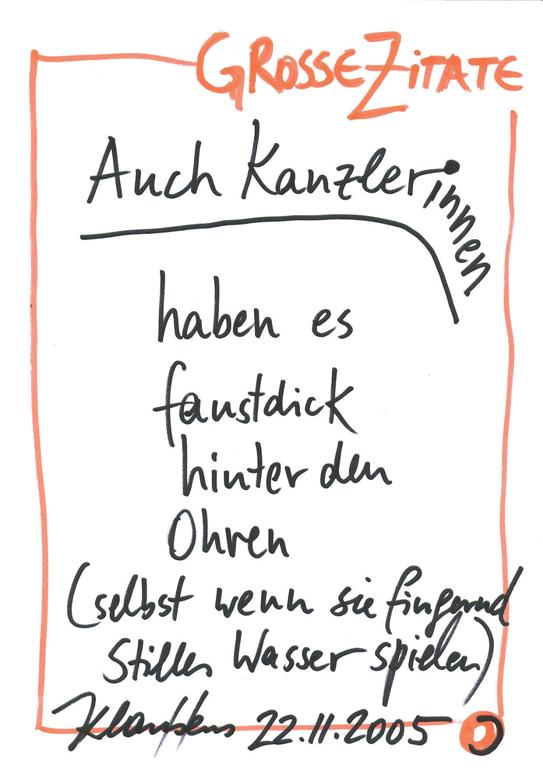 GROSSE ZITATE
Auch Kanzlerinnen
haben es
faustdick
hinter den
Ohren
(selbst wenn sie fingernd
Stilles Wasser spielen)
Klauskens 22.11.2005